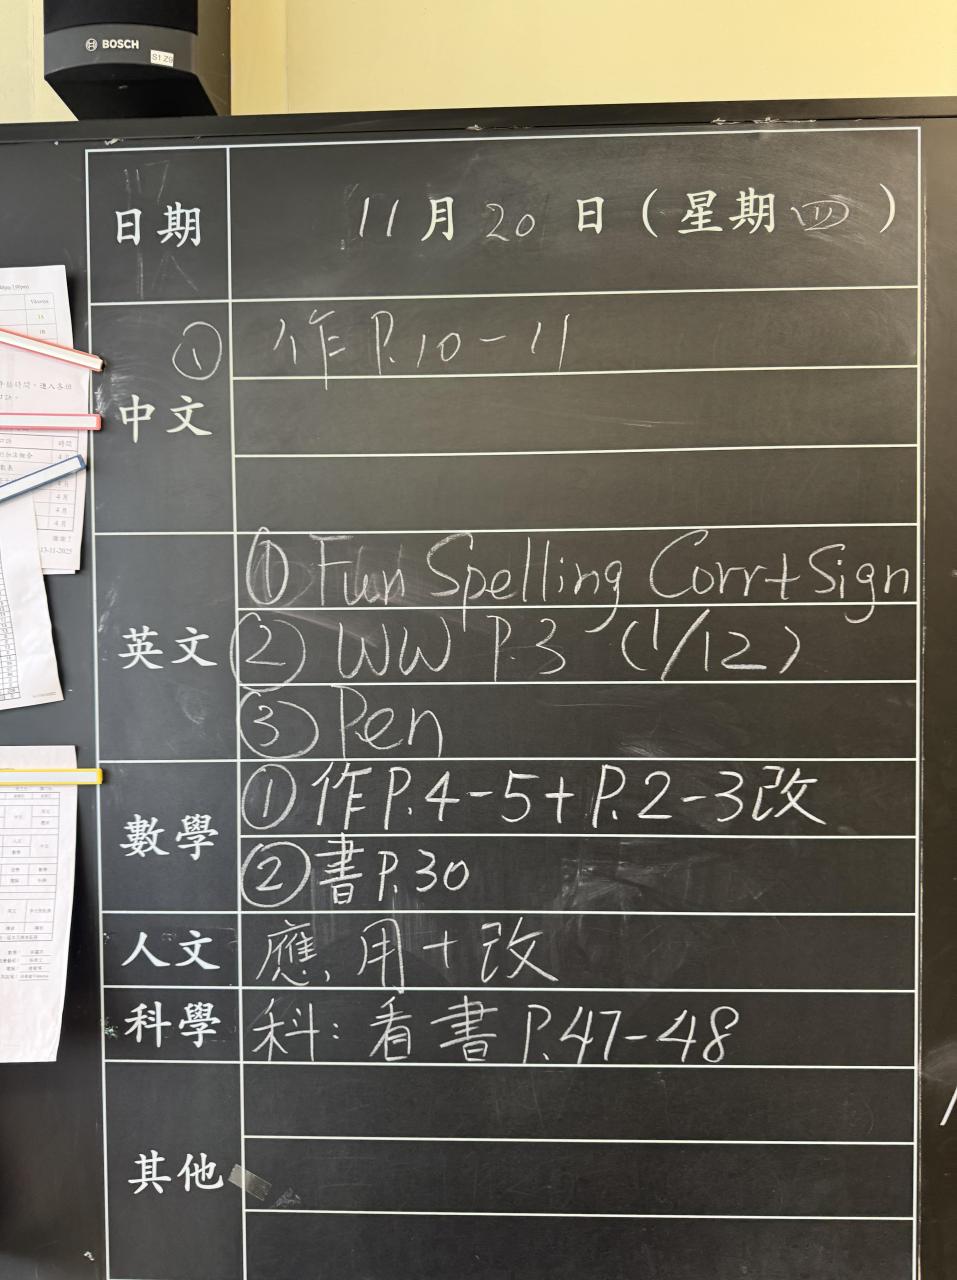 BOSCH
S1.Z9
日期 11月20日（星期四）
中文 ① 作 P.10-11
英文 ① Fun Spelling Corr+Sign
② WW P.3 (1/12)
③ Pen
數學 ① 作P.4-5+P.2-3改
② 書P.30
人文 應用+改
科學 科：看書 P.47-48
其他
13-11-2025